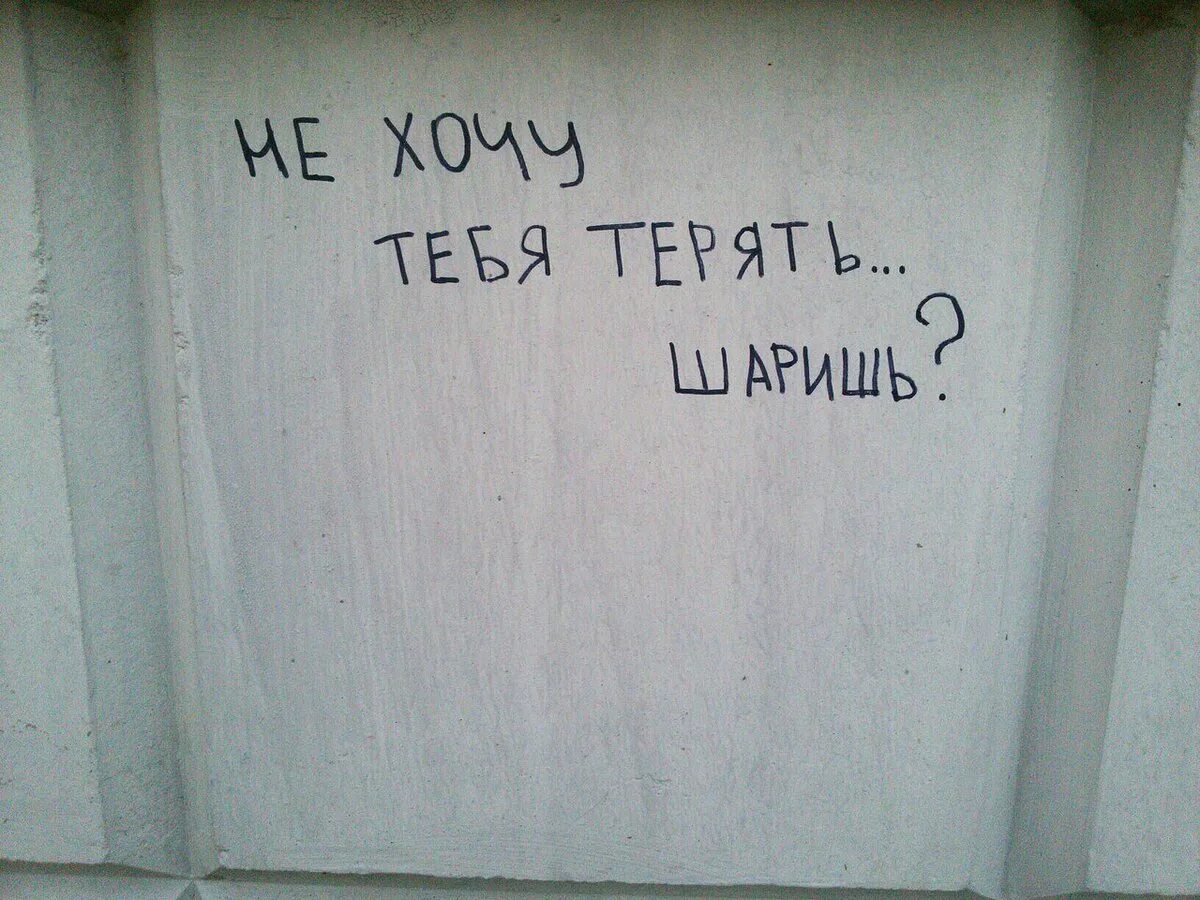 НЕ ХОЧУ
ТЕБЯ ТЕРЯТЬ...
ШАРИШЬ?